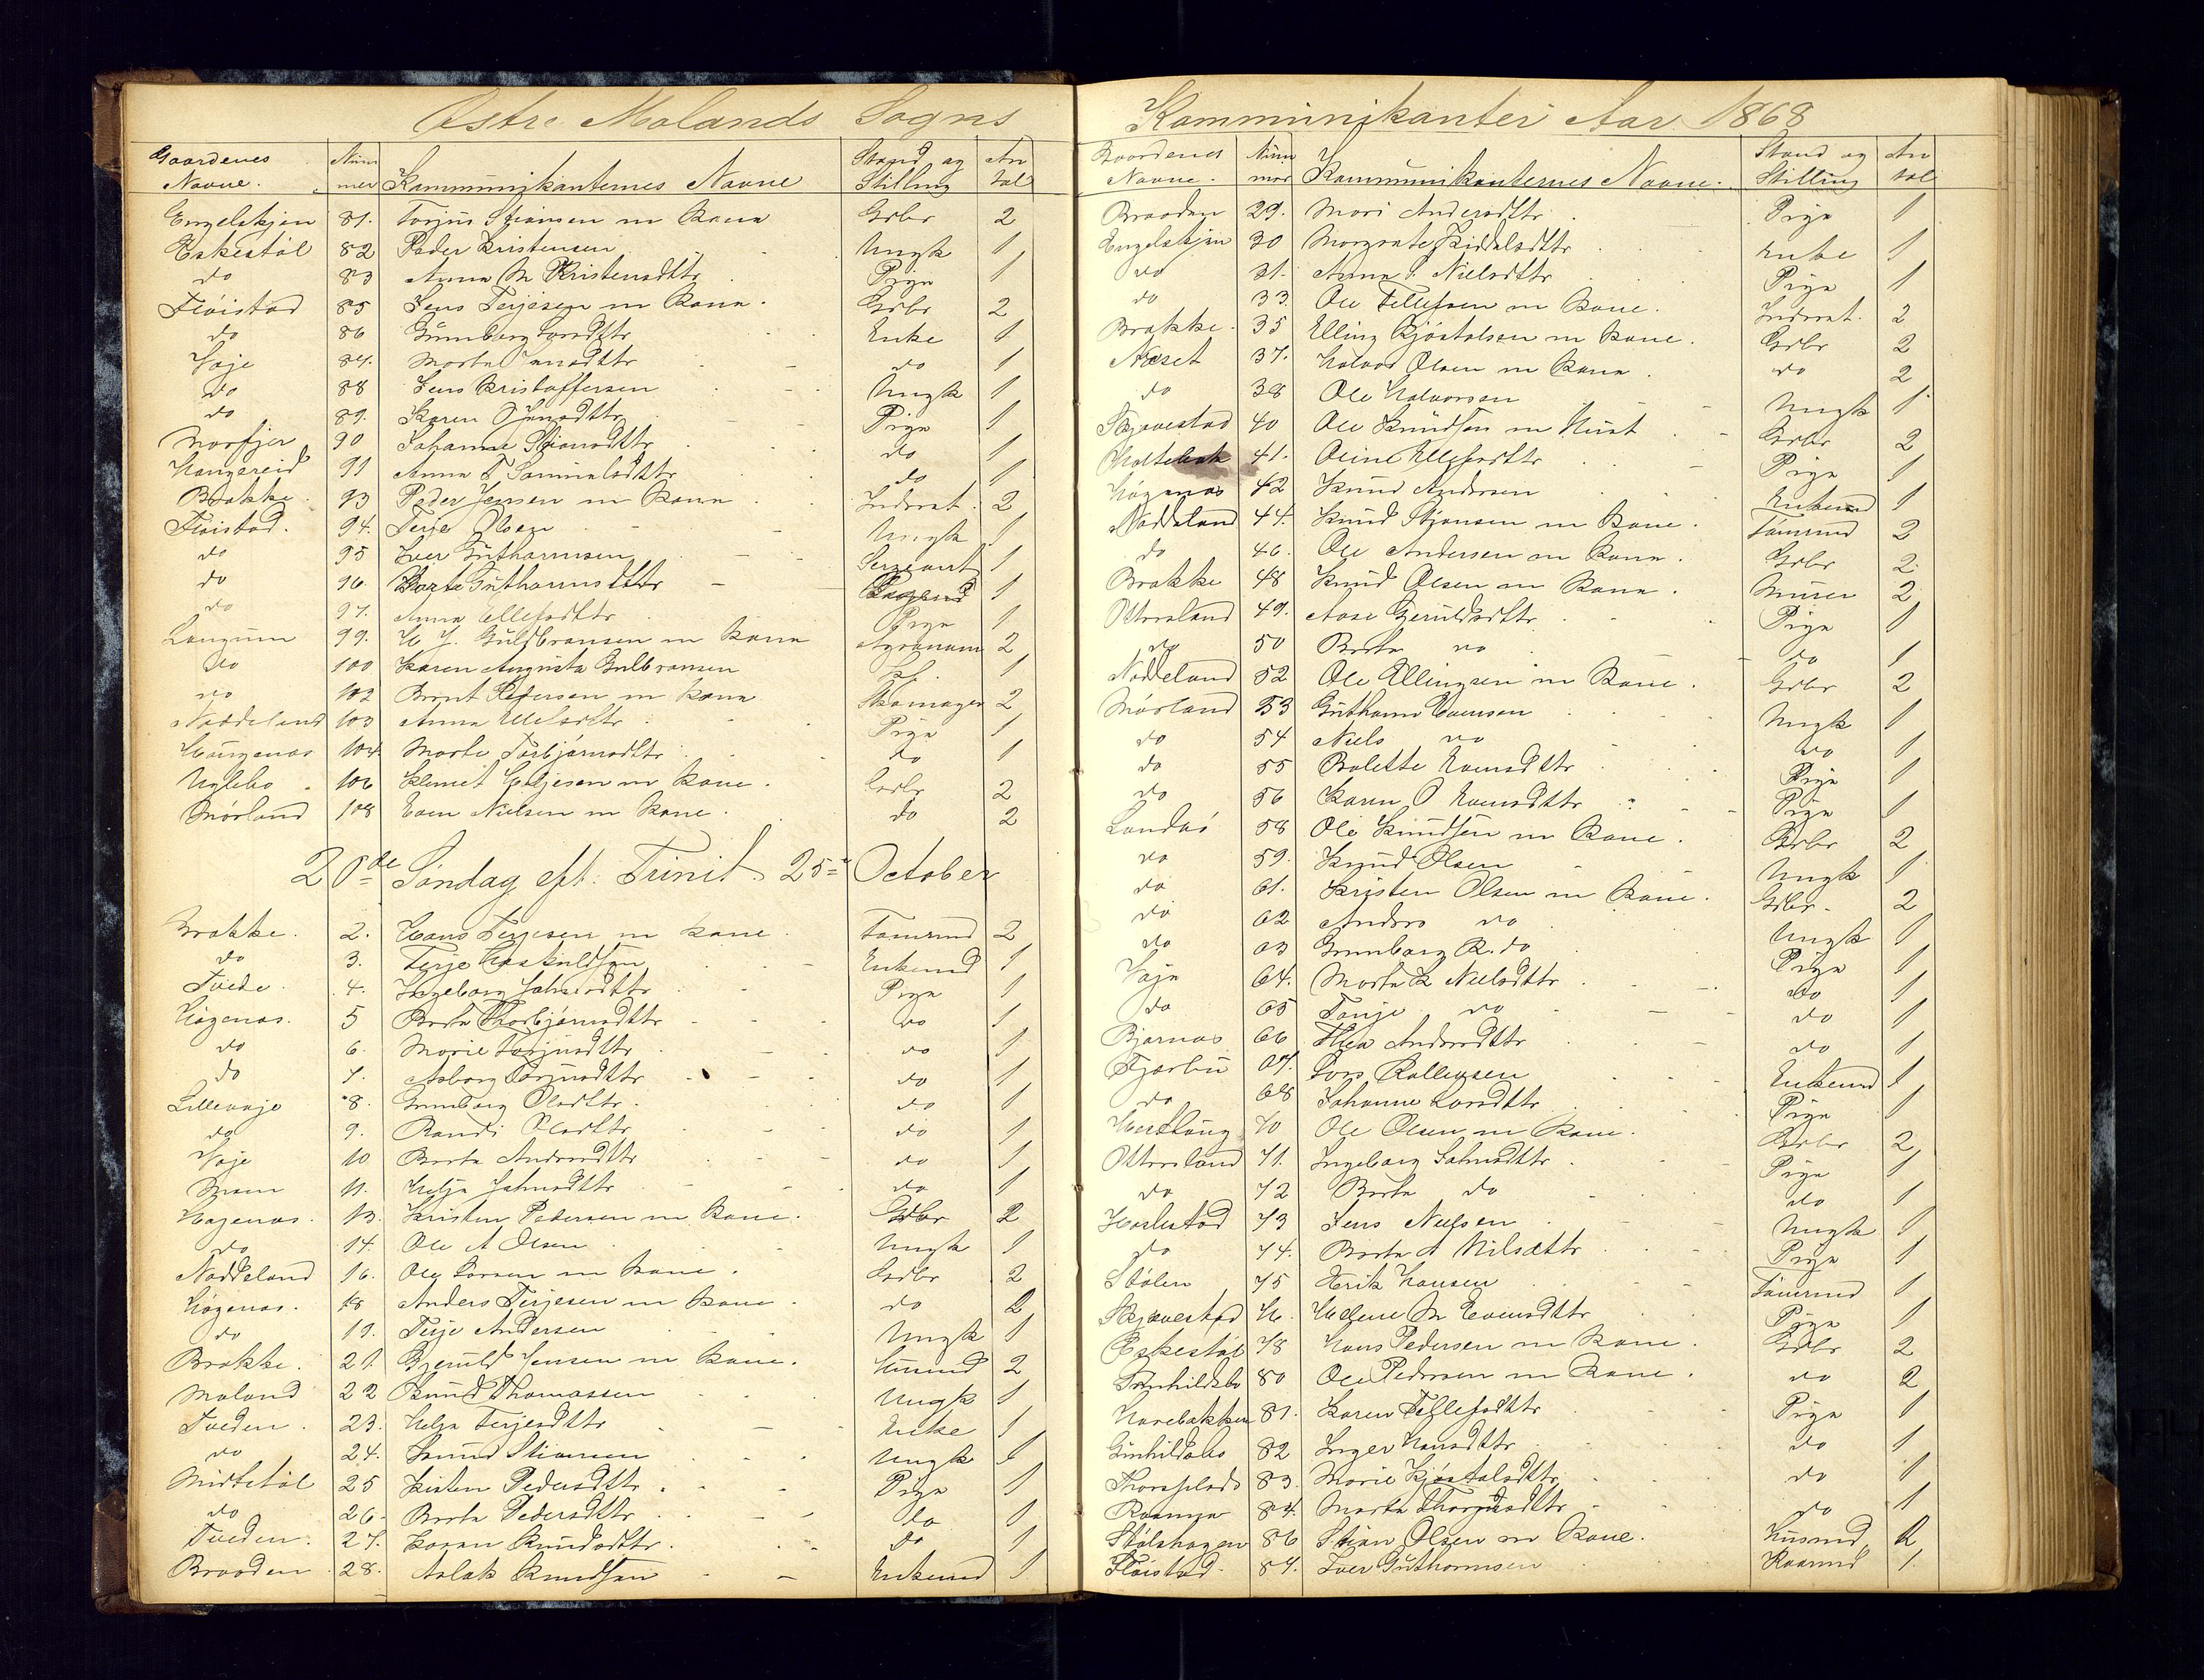 Østre Molands Sogns
Gaardenes Navne. Nummer Kommunikanternes Navne Stand og Stilling Antal
Engelskjen 81. Torjus Stiansen m Kone Grbr 2
Eskestøl 82 Peder Kristensen Ungk 1
do 83 Anna M Kristensdttr Pige 1
Fløistad 85 Jens Terjesen m Kone. Grbr 2
do 86 Gunnborg Larsdttr Enke 1
Vaje 87. Marte Jensdttr do 1
do 88 Jens Kristoffersen Ungk 1
do 89. Karen O Jensdttr Pige 1
Morfjer 90 Johanne Stiansdttr do 1
Haugereid 91 Anna T Samuelsdttr do 1
Brække 93 Peder Jensen m Kone Inderst 2
Fløistad. 94. Terje Olsen Ungk 1
do 95 Iver Guthormsen Sergeant 1
do 96. Berte Guthormsdttr 1
do 97. Anna Ellefsdttr Pige 1
Langum 99. H J. Guldbransen m Kone Agronom 2
do 100 Karen Augusta Gulbransen 1
do 102 Bernt Pedersen m Kone Skomager 2
Næddeland 103 Anna Nilsdttr Pige 1
Haugenæs 104. Marte Torbjørnsdttr do 1
Uglebo 106 Klemet Heljesen m Kone. Grdbr 2
Mørland 108 Even Nielsen m Kone. do 2
20de Søndag eft. Trinit. 25= October
Brække. 2. Hans Terjesen m Kone Tømrmd 2
do 3. Terje Haskuldsen Enkemd 1
Tvede. 4. Ingeborg Jahnsdttr Pige 1
Høgenæs. 5 Berte Thorbjørnsdttr do 1
do 6. Marie Torjusdttr do 1
do 7. Asborg Torjusdttr do 1
Lillevaje 8. Gunnborg Olsdttr. do 1
do 9. Randi Olsdttr do 1
Vaje 10 Berte Andersdttr do 1
Moen 11. Helje Jahnsdttr do 1
Høgenæs. 13. Kristen Pedersen m Kone. Grdbr 2
do 14. Ole A Olsen Ungk 1
Næddeland 16. Ole Larsen m Kone. Grdbr 2
Høgenæs. 18 Anders Terjesen m Kone. do 2
do 19. Terje Andersen Ungk 1
Brække. 21. Gjeruld Jensen m Kone. Husmd 2
Moland 22 Knud Thomassen Ungk 1
Tveden. 23. Helje Terjesdttr Enke 1
do 24. Knud Stiansen Ungk 1
Midtstøl 25 Kirsten Pedersdttr. Pige 1
do 26. Berte Pedersdttr do 1
Tveden. 27. Karen Knudsdttr. do 1
Braaden 28. Aslak Knudsen Enkemd 1
Kommunikanter Aar 1868
Gaardenes Navne. Nummer Kommunikanternes Navne. Stand og Stilling Antal
Braaden 29. Mari Andersdttr Pige 1
Engelskjen 30 Margrete Kiddelsdttr Enke 1
do 31. Anna S. Nielsdttr Pige 1
do 33. Ole Tellefsen m Kone. Inderst. 2
Brække 35 Elling Kjøstolsen m Kone. Grbr 2
Næset 37. Halvor Olsen m Kone. do 2
do 38 Ole Halvorsen Ungk 1
Skjævestad 40 Ole Knudsen m Hust. Grbr 2
41. Oline Ellefsdttr Pige 1
Høgenæs 42 Knud Andersen Enkemd 1
Næddeland 44. Knud Stiansen m Kone. Tømrmd 2
do 46. Ole Andersen m Kone. Grbr 2
Brække 48 Knud Olsen m Kone. Murer 2
Ottersland 49. Aase Geruldsdttr Pige 1
do 50 Berte do do 1
Næddeland 52 Ole Ellingsen m Kone. Grbr 2
Mørland 53 Guthorm Evensen Ungk 1
do 54 Niels do do 1
do 55 Bolette Evensdttr Pige 1
do 56 Karen O Evensdttr Pige 1
Landaas 58 Ole Knudsen m Kone. Grbr 2
do 59. Knud Olsen Ungk 1
do 61. Kristen Olsen m Kone. Grbr. 2
do 62 Anders do Ungk 1
do 63 Gunnborg K. do Pige 1
Vaje 64. Marte K Nielsdttr do 1
do 65 Tonje do do 1
Bjørnaas 66 Thea Andersdttr do 1
Fjærbu 67. Lars Rollefsen Enkemd 1
do 68 Johanne Larsdttr Pige 1
70 Ole Olsen m Kone. Grdbr 2
Ottersland 71. Ingeborg Jahnsdttr Pige 1
do 72 Berte do do 1
Harlestad 73 Jens Nielsen Ungk 1
do 74. Berte A Nilsdttr Pige 1
Stølen 75 Henrik Hansen Tømrmd 1
Skjævestad 76. Helene M Evensdttr Pige 1
Eskestøl 78 Hans Pedersen m Kone. Grdbr 2
80 Ole Pedersen m Kone. do 2
Harebakken 81. Karen Tellefsdttr Pige 1
Gunhildsbo 82 Inger Hansdttr do 1
Thorsplads 83. Marie Kjøstolsdttr do 1
84. Marte Thorjusdttr do 1
Stølshagen 86 Stian Olsen m Kone. Husmd 2
Fløistad. 87. Iver Guthormsen 1.